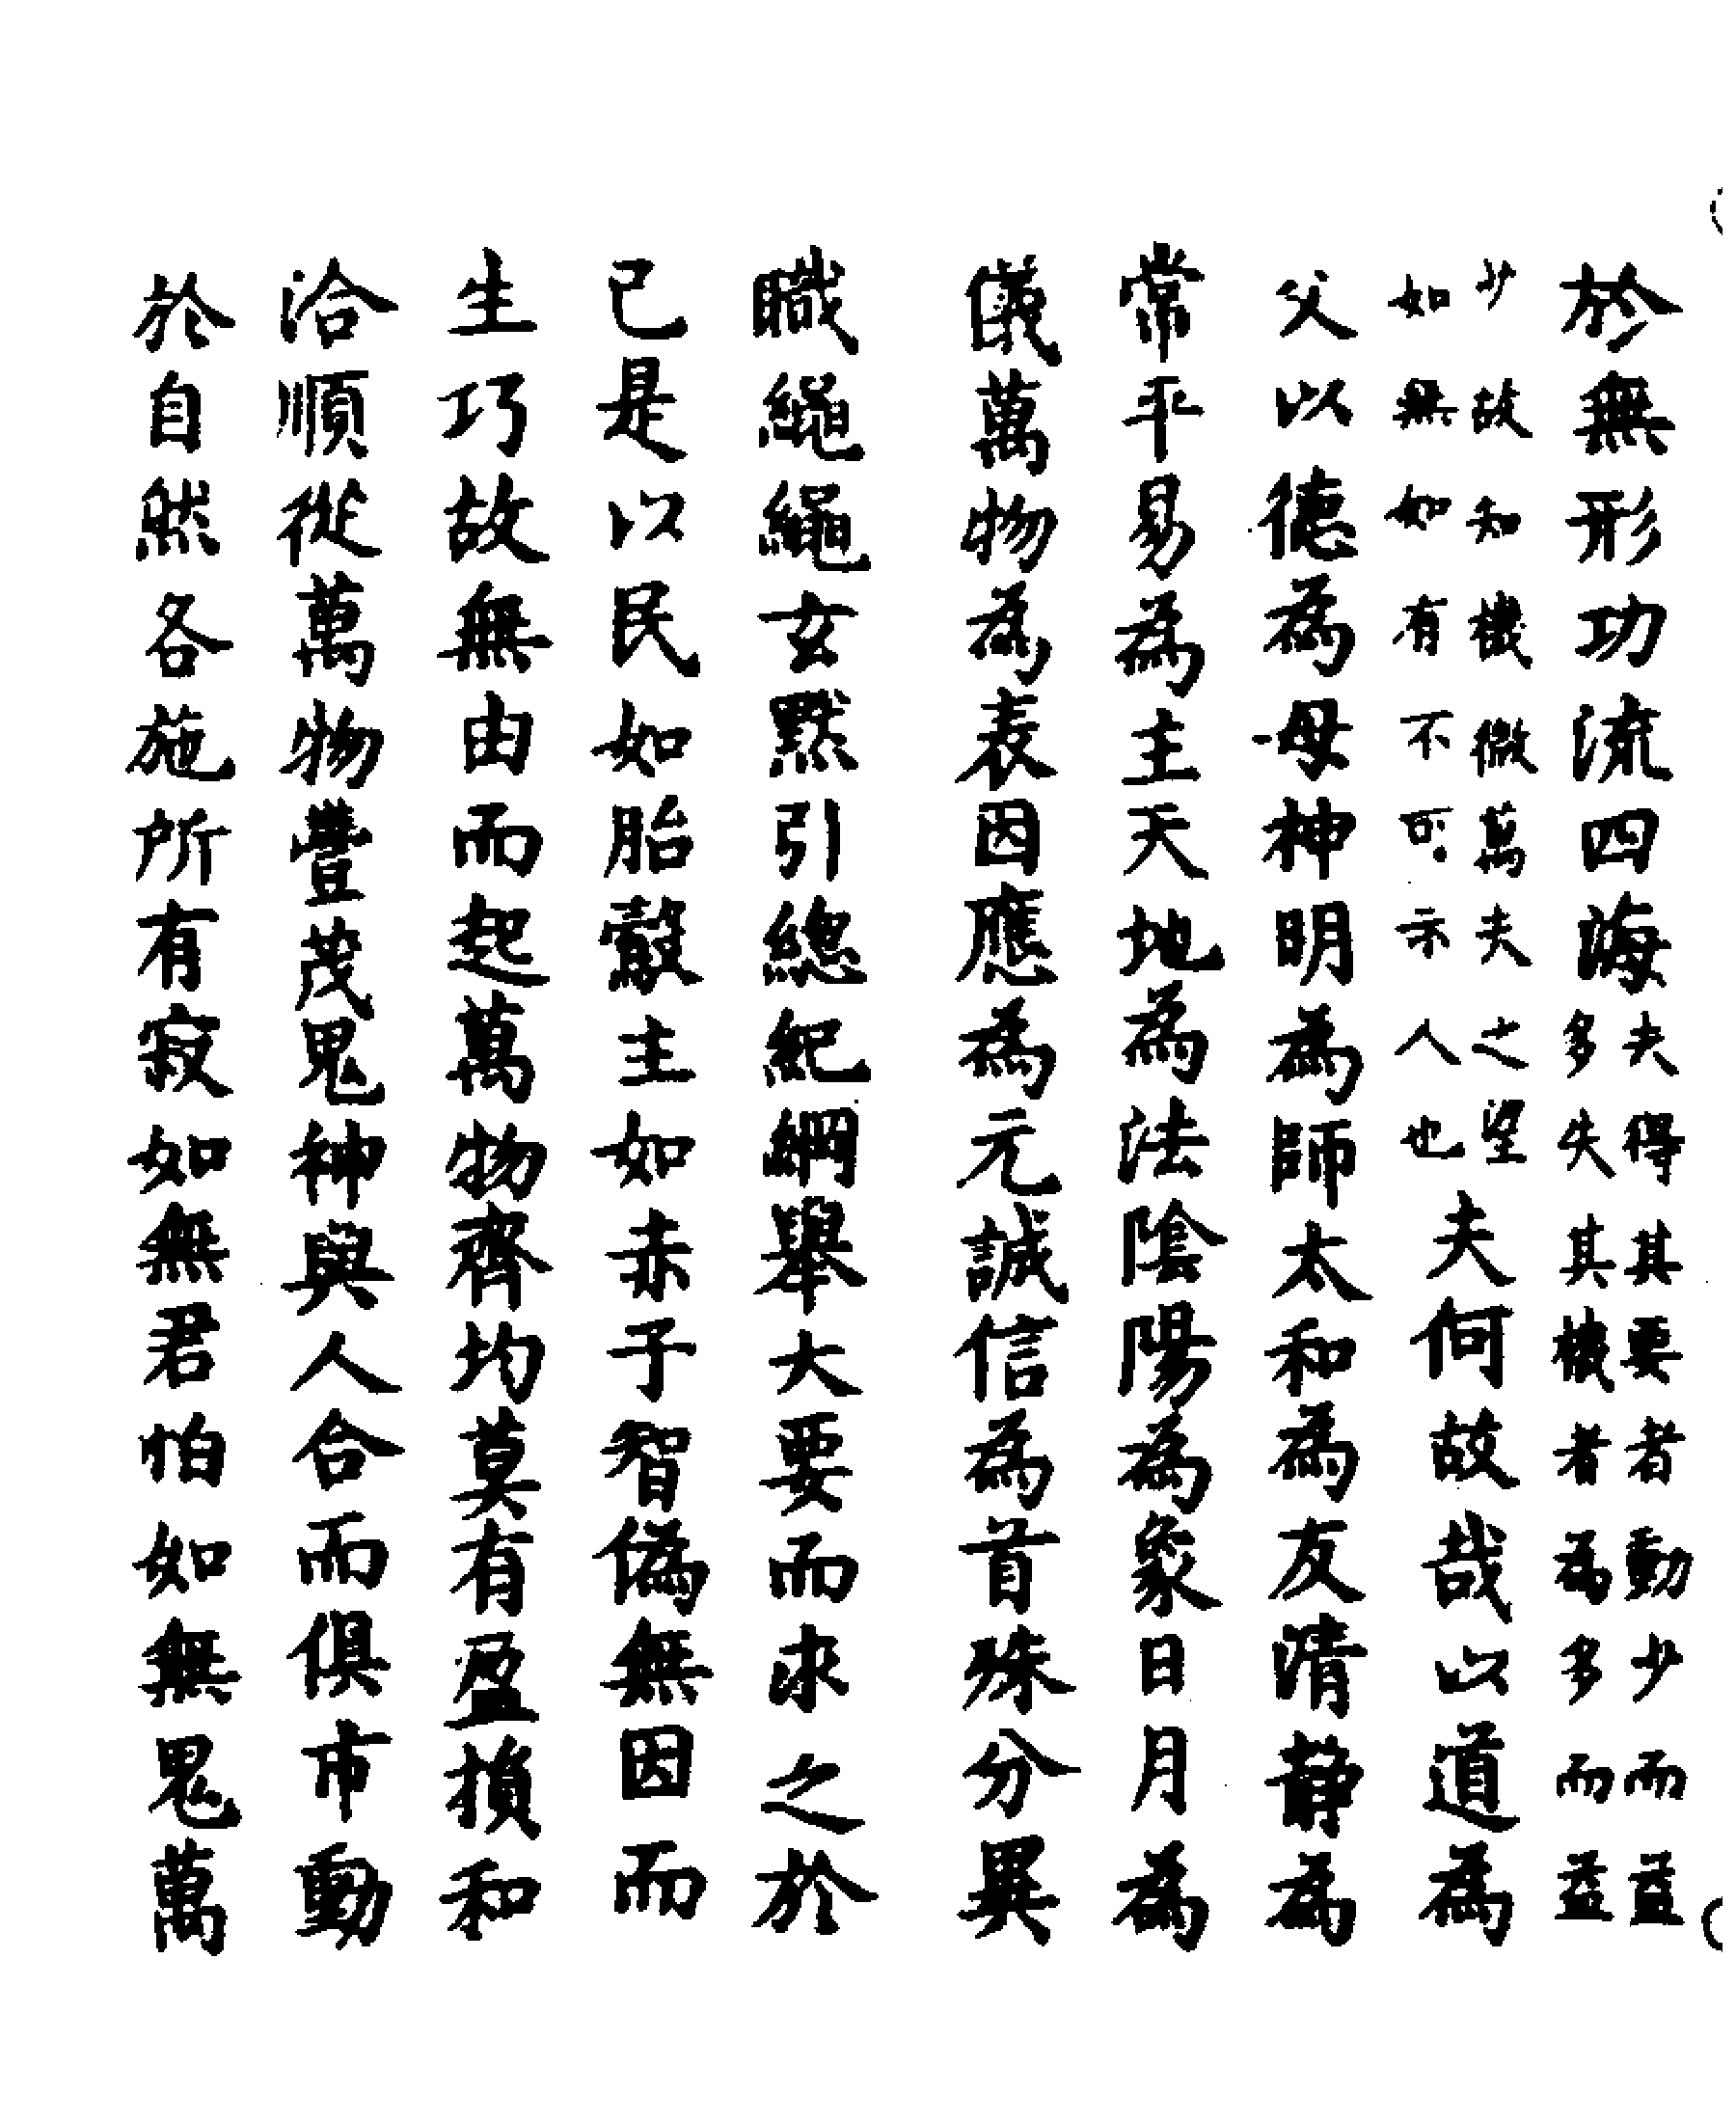 於無形功流四海夫得其要者動少而益
多失其機者為多而益
少故知機微萬夫之望
如無如有不可示人也夫何故哉以道為
父以德為母神明為師太和為友清靜為
常平易為主天地為法陰陽為象日月為
儀萬物為表因應為元誠信為首殊分異
職繩繩玄默引總紀綱舉大要而求之於
已是以民如胎鷇主如赤子智偽無因而
生巧故無由而起萬物齊均莫有盈損和
洽順從萬物豐茂鬼神與人合而俱市動
於自然各施所有寂如無君怕如無鬼萬